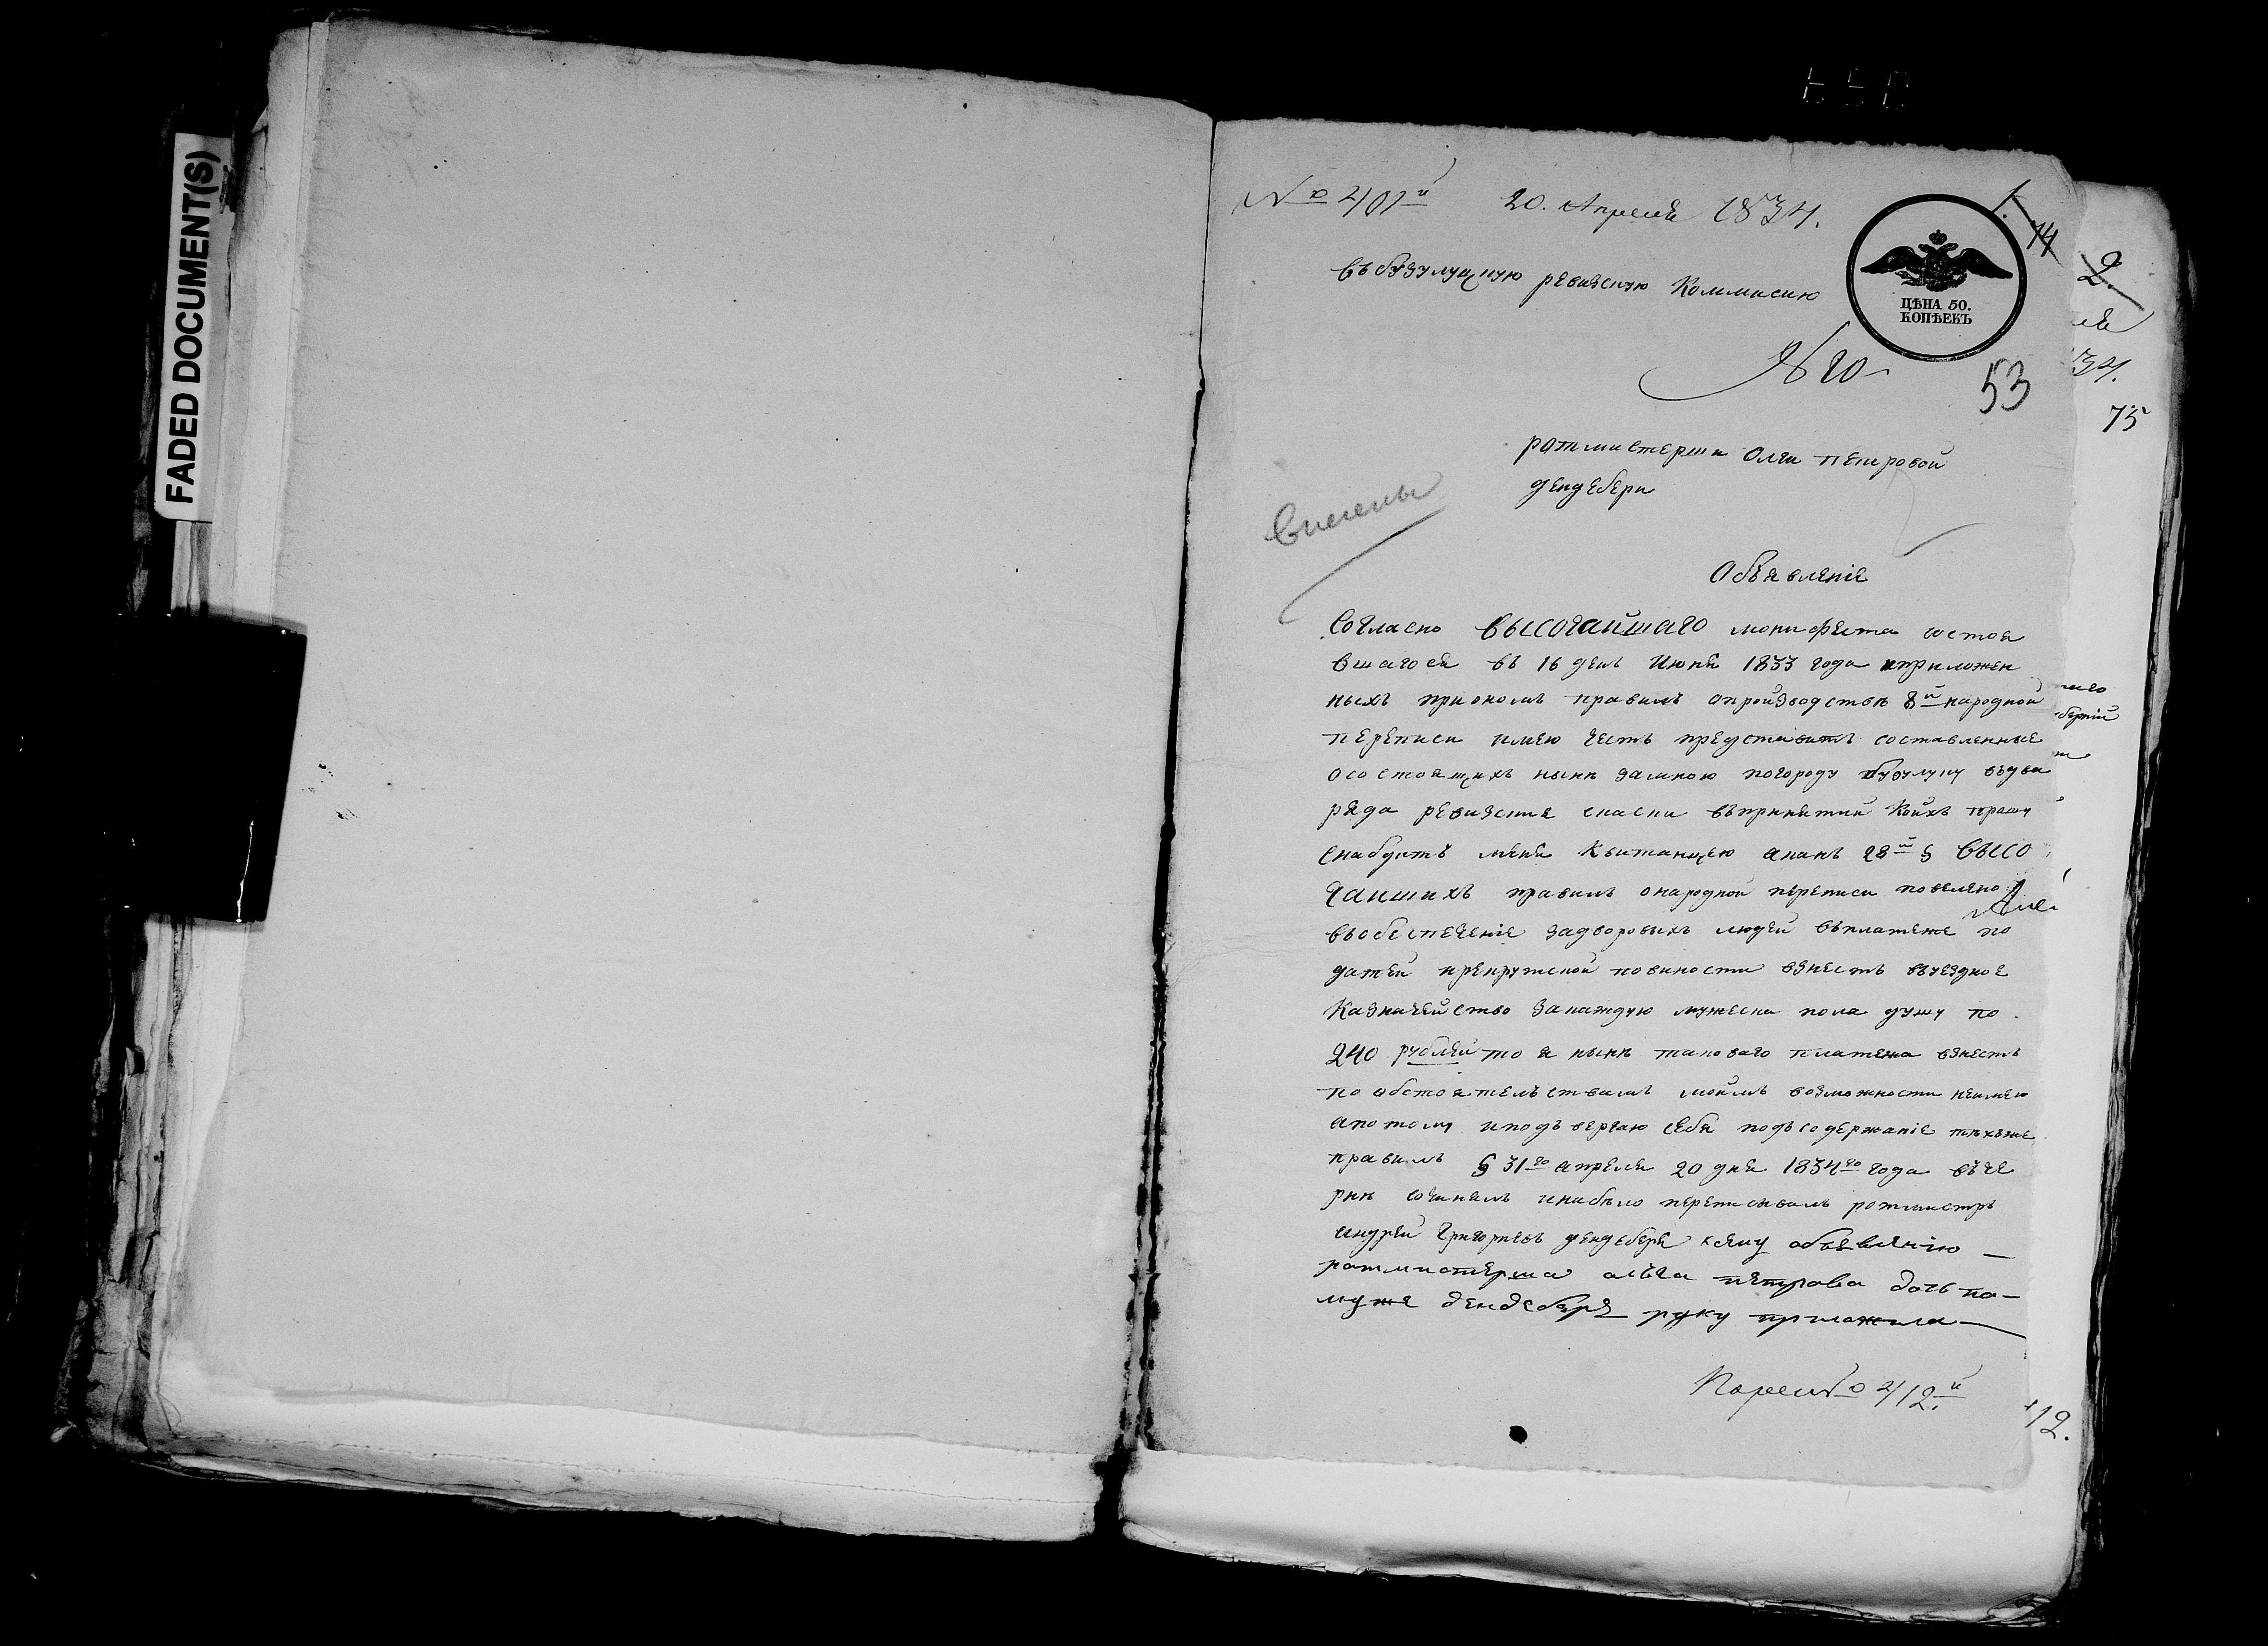 FADED DOCUMENT(S)
№ 401й 20. Апреля 1834.
въ бузулуцкую ревизскую Коммисию
ЦѢНА 50.
КОПѢЕКЪ
14
2
53
34.
75
ротмистерши Олги петровой
дендебери
Объявленіе
Согласно высочайшаго монифеста состоя
вшагося въ 16 день Июня 1833 года иприложен
ныхъ приономъ правилъ опроизводстве 8й народной
переписи имею честь представить составленные
осостоящихъ ныне замною погороду бузулуку въдва
ряда ревизские скаски въпринятии Коихъ прошу
снабдить меня Квитанцею акакъ 28й § Высо
чаишихъ правилъ онародной переписи повелено
въобеспечение задворовыхъ людей въплатеже по
датей ирекрутской повиности взнесть въуездное
Казначейство закаждую мужеска пола душу по
240 рублей то я ныне таковаго платежа взнесть
по обстоятелъствамъ моимъ возможности неимею
апотому иподъвергаю себя подъсодержаніе техъже
правилъ § 31го апреля 20 дня 1834го года въче
рне сочинялъ инабело переписывалъ ротмистръ
андрей Григорьевъ дендебери ксему объявлению
ротмистерша алъга петрова дочь по
муже дендеберя руку приложила
412й
12.